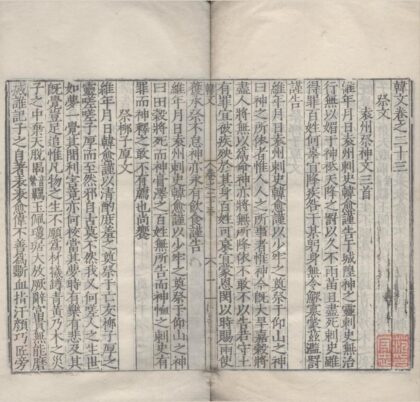 韓文卷之二十三
祭文
袁州祭神文三首
維年月日袁州刺史韓愈謹告于城隍神之靈刺史無治
行無以媚于神祇天降之罰以久不雨苗且盡死刺史雖
得罪百姓何辜宜降疾咎于某躬身無令鰥寡蒙茲濫罰
謹告
維年月日袁州刺史韓愈謹以少牢之奠祭于仰山之神
曰神之所依者惟人人之所事者惟神今既大旱嘉穀將
盡人將無以為命神亦將無所降依不敢不以告若守土
有罪宜被疾殃於其身百姓可哀宜蒙恩閔以時賜雨使
獲承祭不怠神亦永有飲食謹告
維年月日袁州刺史韓愈謹以少牢之奠祭于仰山之神
曰田穀將死而神膏澤之百姓無所告而神恤之刺史有
罪而神釋之敢不有薦也尚饗
祭柳子厚文
維年月日韓愈謹以清酌庶羞之奠祭于亡友柳子厚之
靈嗟嗟子厚而至然邪自古莫不然我又何嗟人之生世
如夢一覺其間利害竟亦何校當其夢時有樂有悲及其
既覺豈足追惟凡物之生不願為材犧尊青黃乃木之災
子之中棄天脫馽羈玉佩瓊琚大放厥辭富貴無能磨
滅誰記子之自著表表愈偉不善為斲血指汗顏巧匠旁